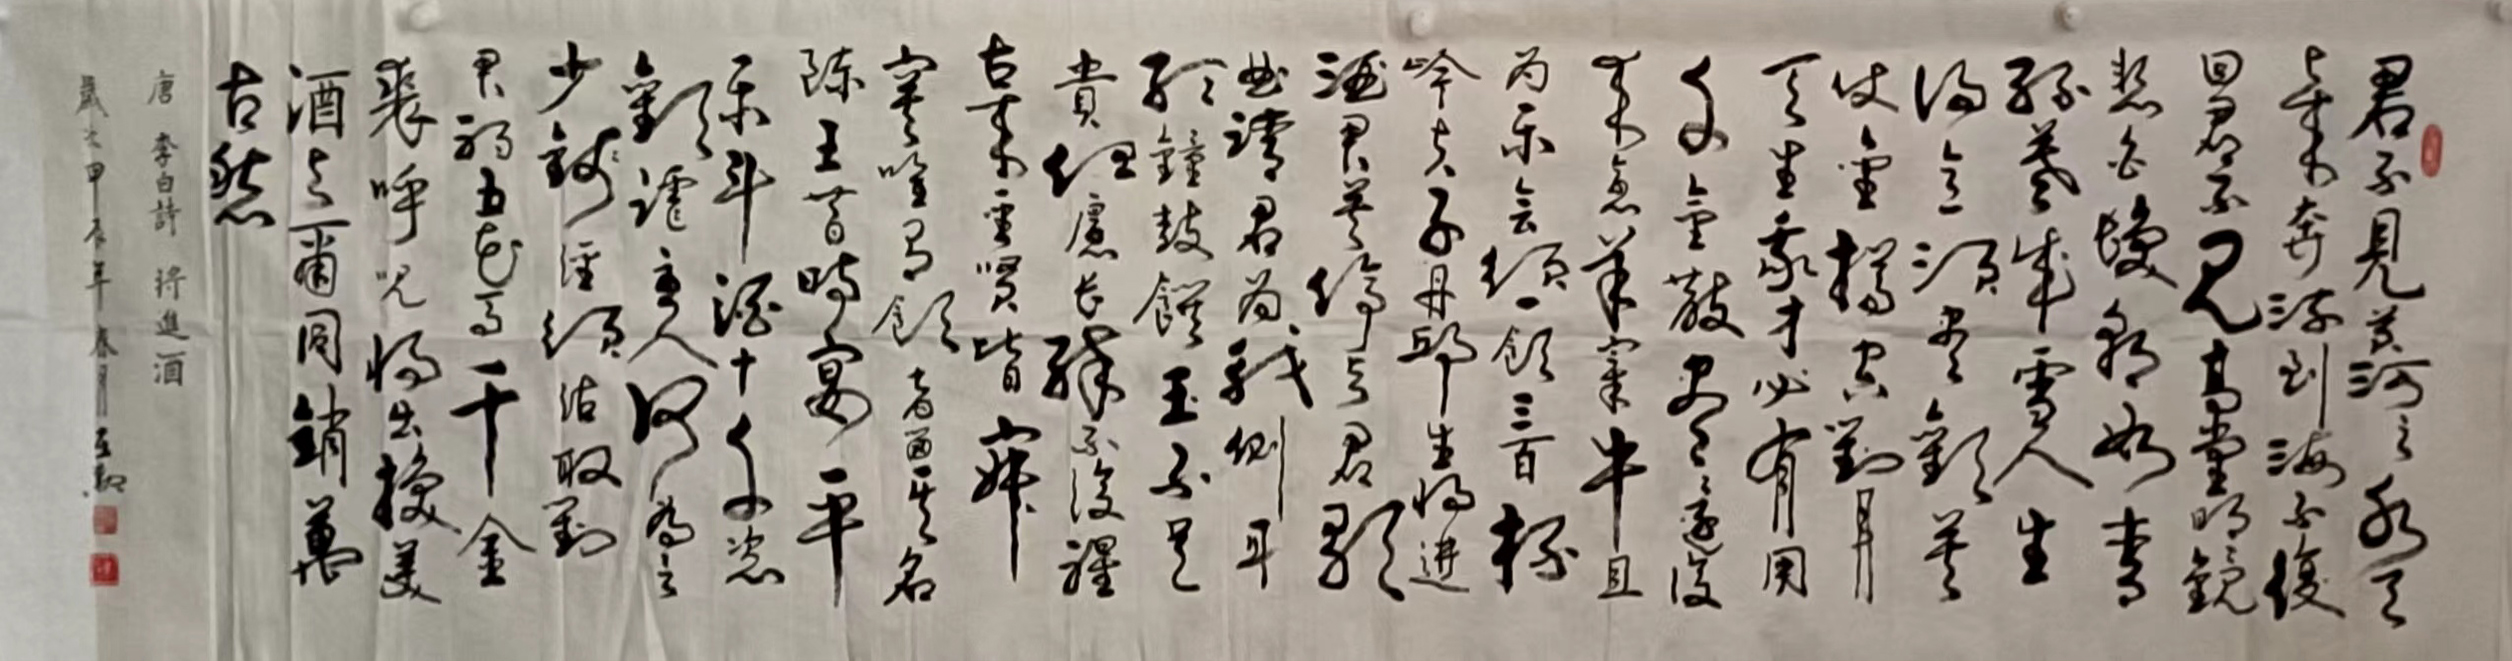 君不見黃河之水天
上來奔流到海不復
回君不見高堂明鏡
悲白髮朝如青
絲暮成雪人生
得意須盡歡莫
使金樽空對月
天生我才必有用
千金散盡還復
來烹羊宰牛且
為樂會須一飲三百杯
吟夫子丹邱生將进
酒君莫停與君歌
曲請君為我側耳
聽鐘鼓饌玉不足
貴但願長醉不復醒
古來聖賢皆寂
寞唯有飲者留其名
陳王昔時宴平
樂斗酒十千恣
歡謔主人何為言
少錢徑須沽取對
君酌五花馬千金
裘呼兒將出換美
酒與爾同銷萬
古愁
唐 李白詩 將進酒
歲次甲辰年春月